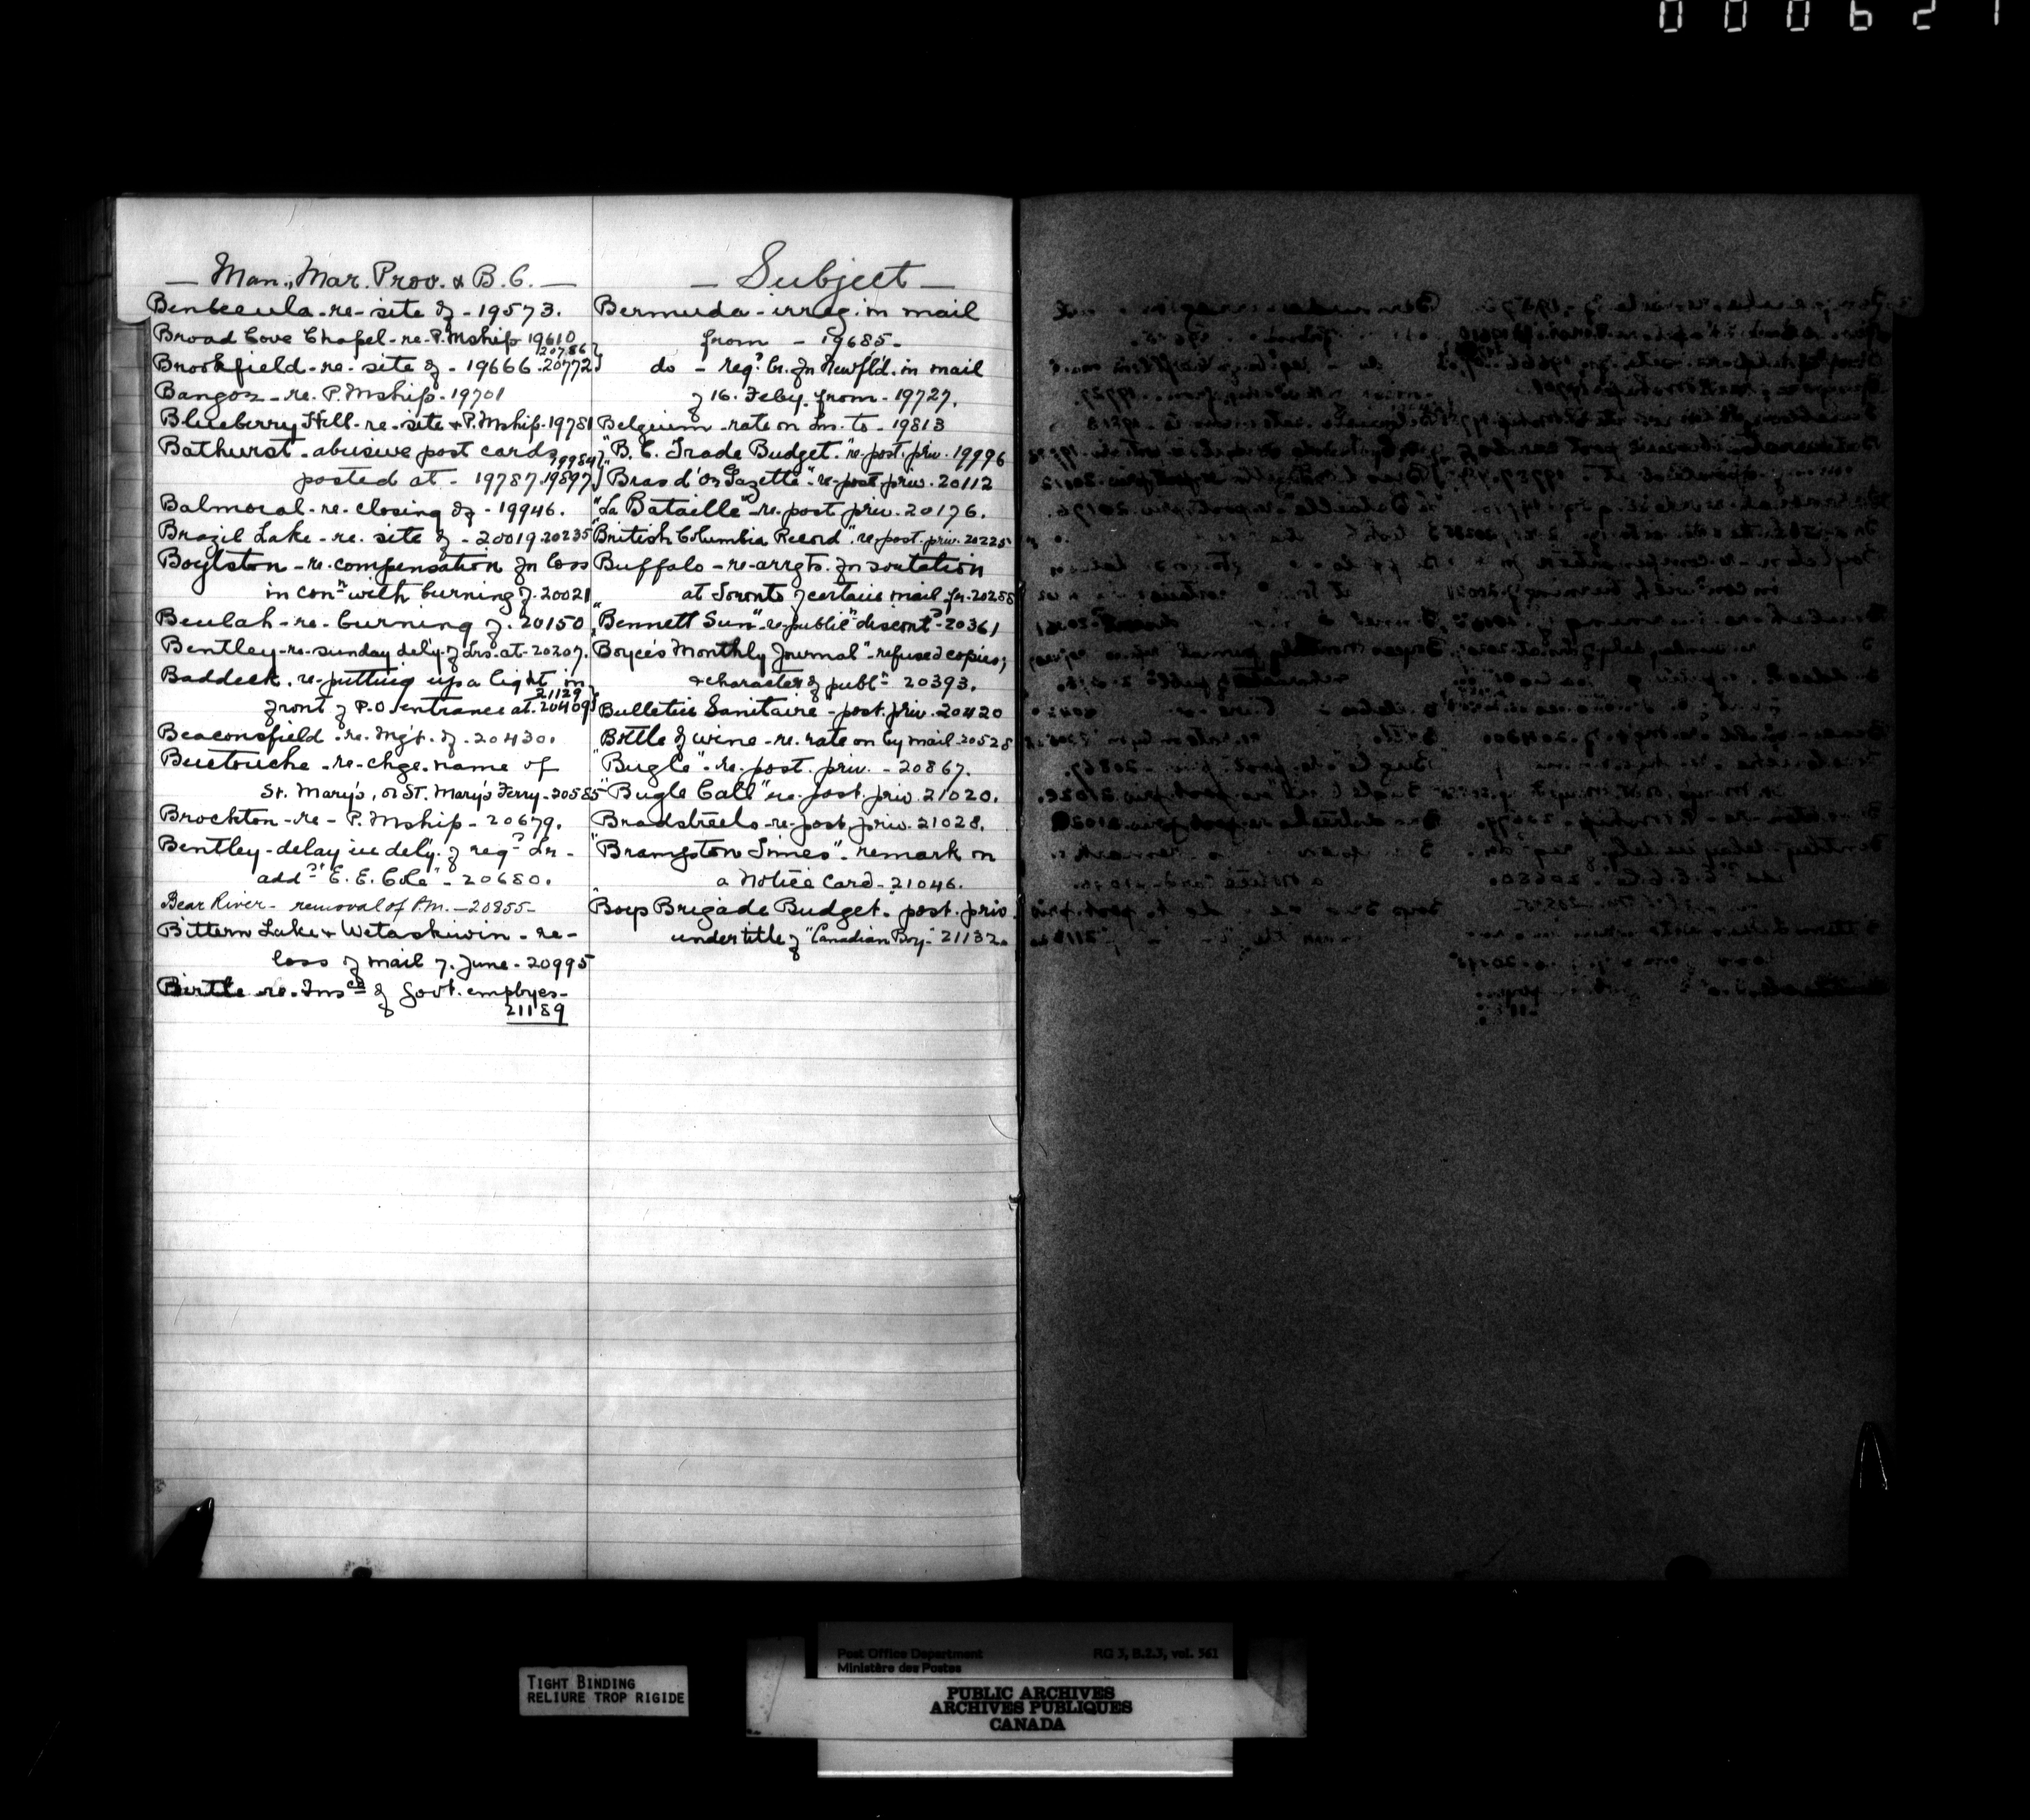 000621
— Man., Mar. Prov. & B.C. —
Benbecula - re - site of - 19573.
Broad Cove Chapel - re - P.Mship 19610
20786
Brookfield - re - site of - 19666. 20772
Bangor - re. P.Mship - 19701
Blueberry Hill - re - site & P.Mship - 19781
Bathurst - abusive post cards
19984
posted at - 19787. 19897
Balmoral - re - closing of - 19946.
Brazil Lake - re. site of - 20019. 20235
Boylston - re - compensation for loss
in conn with burning of - 20021
Beulah - re - burning of - 20150
Bentley - re - sunday dely. of Lrs. at - 20207.
Baddeck. re - putting up a light in
21129
front of P.O. entrance at. 20409
Beaconsfield - re - Mgt. of - 20430.
Buctouche - re - chge. name of
St. Mary's, or St. Mary's Ferry - 20585
Brockton - re - P.Mship - 20679.
Bentley - delay in dely. of regd Lr -
addd "E. E. Cole" - 20680.
Bear River - removal of P.M. - 20855 -
Bittern Lake & Wetaskiwin - re -
loss of mail 7. June - 20995
Birtle re. Insce of Govt. employes -
21189
— Subject —
Bermuda - irreg. in mail
from - 19685 -
do - regd Lr. for Newf'ld. in mail
of 16. Feby. from - 19727.
Belgium - rate on Lrs. to - 19813
"B. C. Trade Budget." re - post. priv. 19996
"Bras d'Or Gazette" - re - post. priv. 20112
"La Bataille" - re. post. priv. 20176.
"British Columbia Record". re - post. priv. 20225
Buffalo - re - arrgts. for sortation
at Toronto of certain mail fr. 20258
"Bennett Sun" - re - publicn discontd - 20361
"Boyce's Monthly Journal" - refused copies;
& character of publn 20393.
Bulletin Sanitaire - post. priv. 20420
Bottle of wine - re. rate on by mail - 20528
"Bugle" - re. post. priv. - 20867.
"Bugle Call" re - post. priv. 21020.
Bradstreets - re - post. priv. 21028.
"Brampton Times" - remark on
a Notice Card - 21046.
"Boys Brigade Budget." post. priv.
under title of "Canadian Boy" - 21132.
TIGHT BINDING
RELIURE TROP RIGIDE
Post Office Department RG 3, B.2.3, vol. 561
Ministère des Postes
PUBLIC ARCHIVES
ARCHIVES PUBLIQUES
CANADA